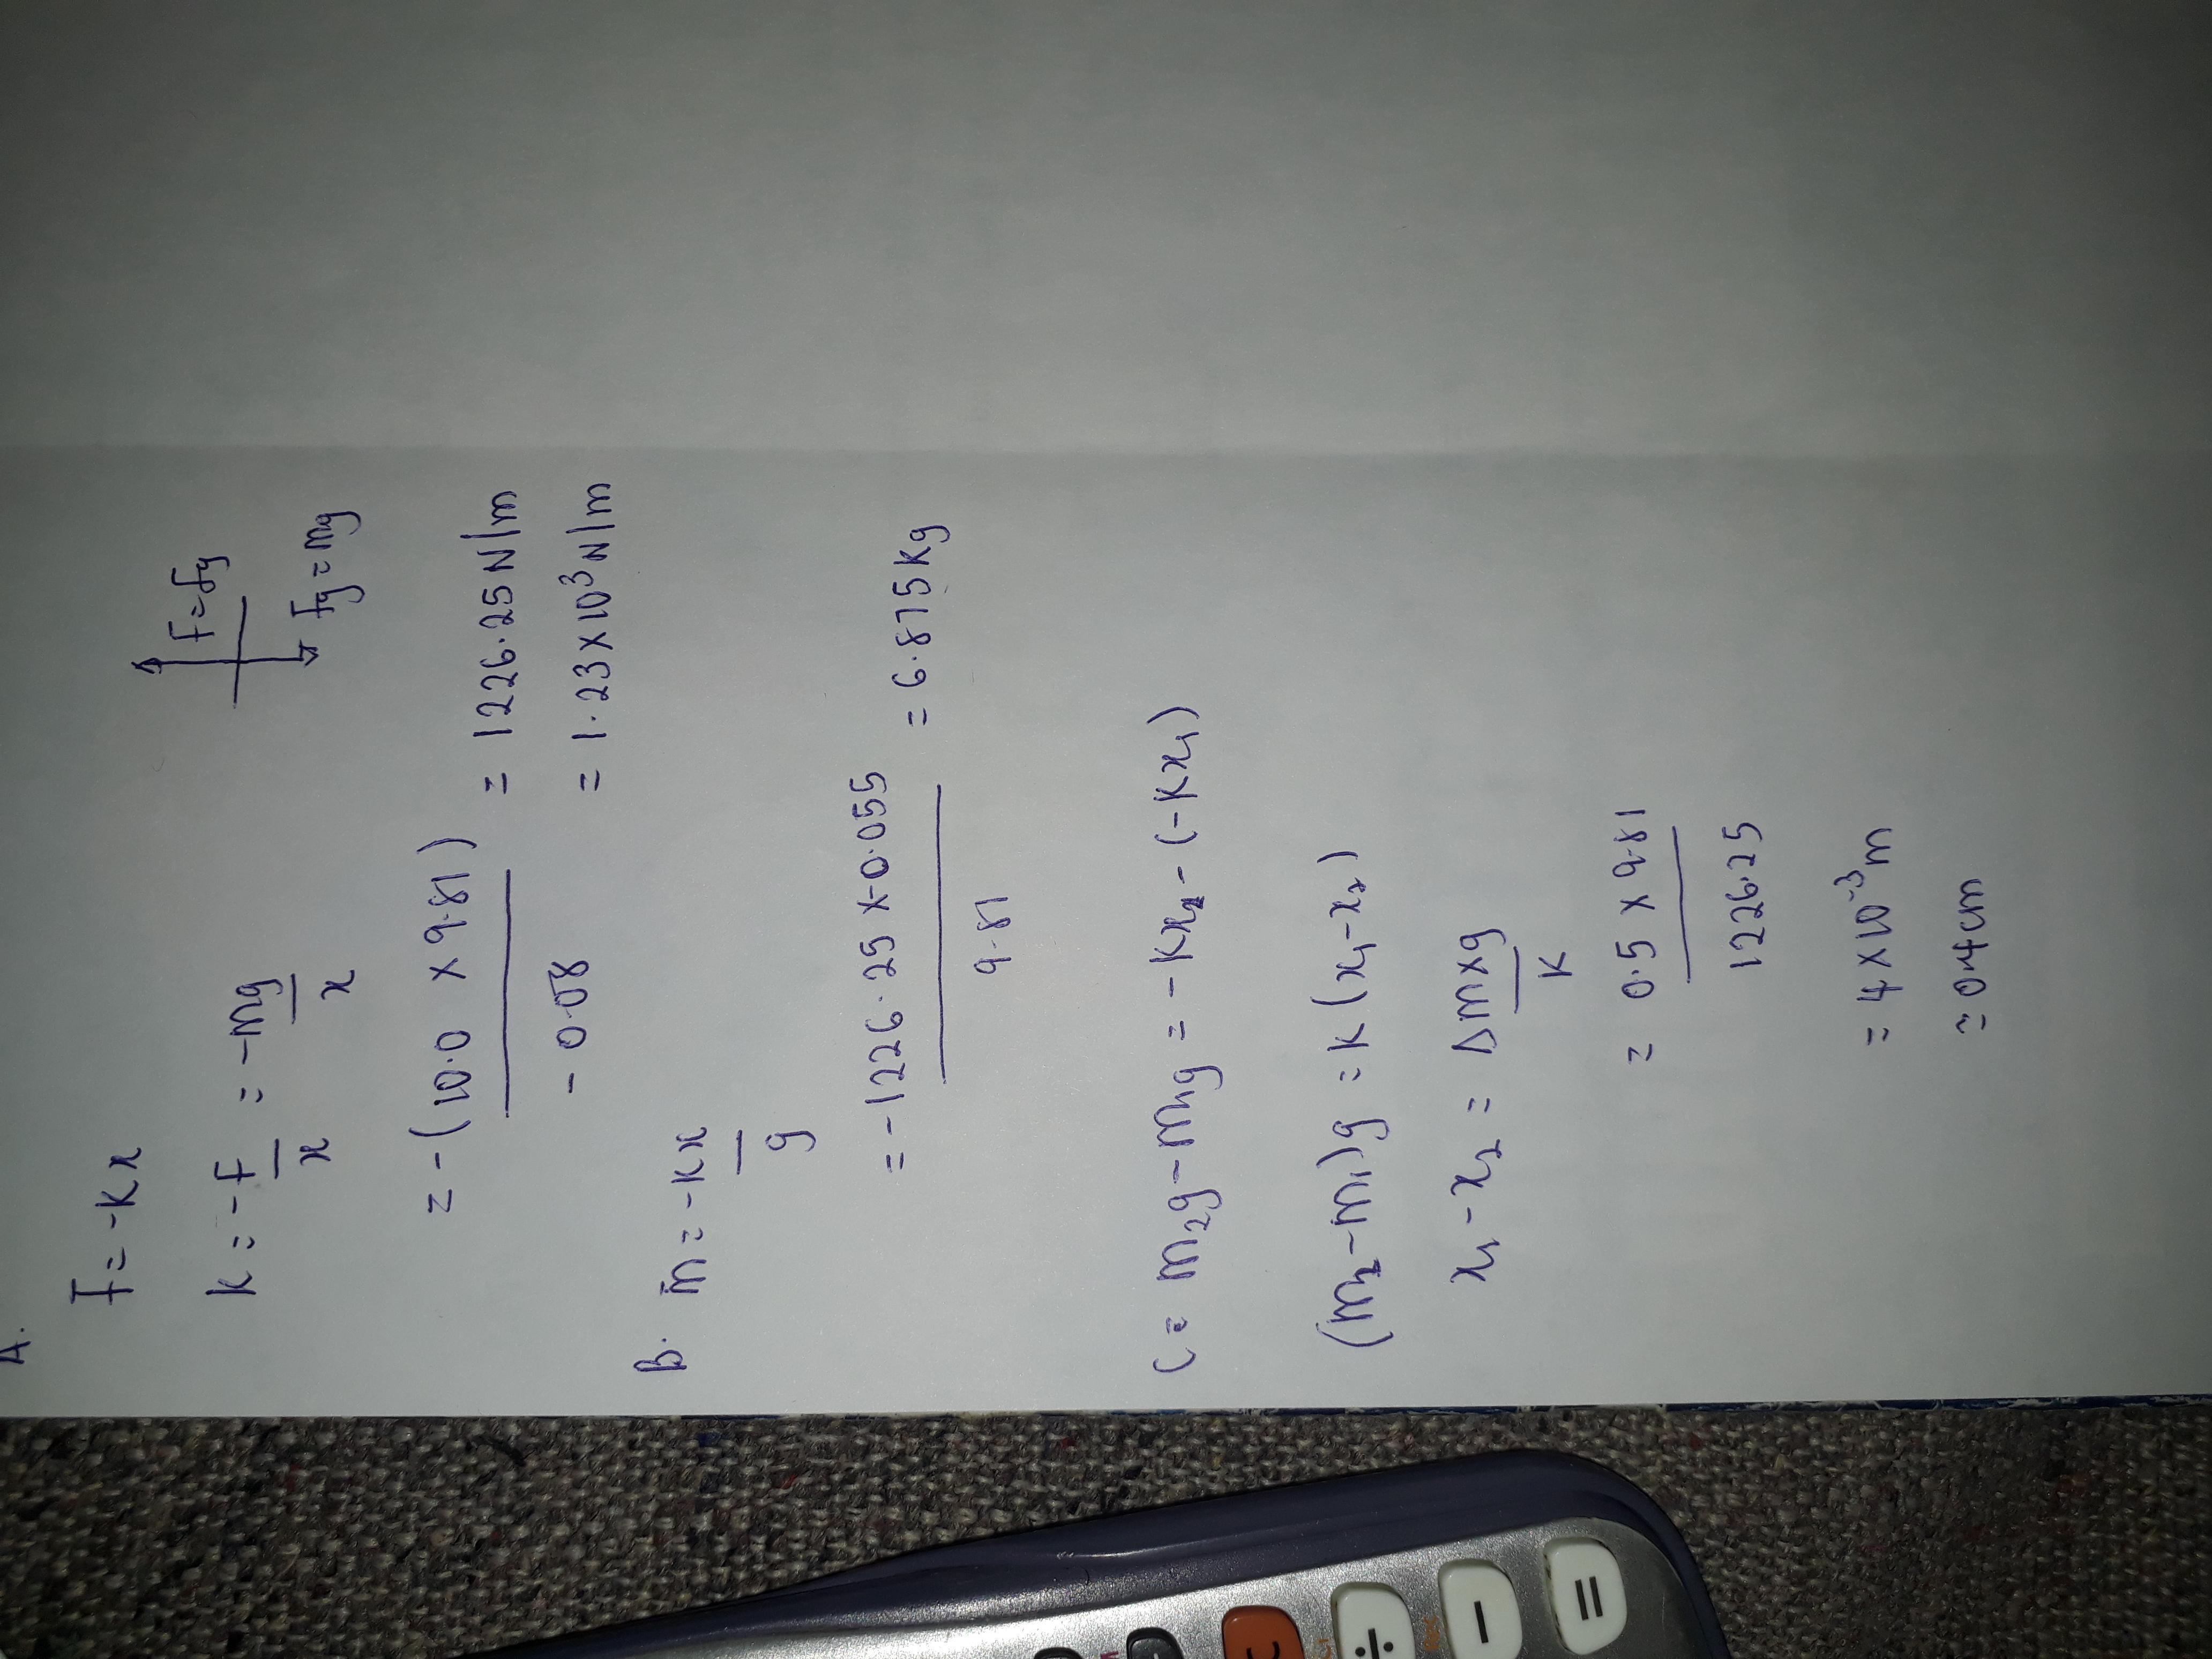 A.
F = -Kx
F = Fg
K = -F/x = -mg/x
Fg = mg
= -(10.0 x 9.81)/-0.08 = 1226.25 N/m
= 1.23 x 10³ N/m
B. m = -Kx/g
= -1226.25 x -0.055/9.81 = 6.875 Kg
C = m₂g - m₁g = -Kx₂ - (-Kx₁)
(m₂-m₁)g = K(x₁-x₂)
x₁-x₂ = Δmxg/K
= 0.5 x 9.81/1226.25
= 4 x 10⁻³ m
= 0.4cm
C
÷
−
=